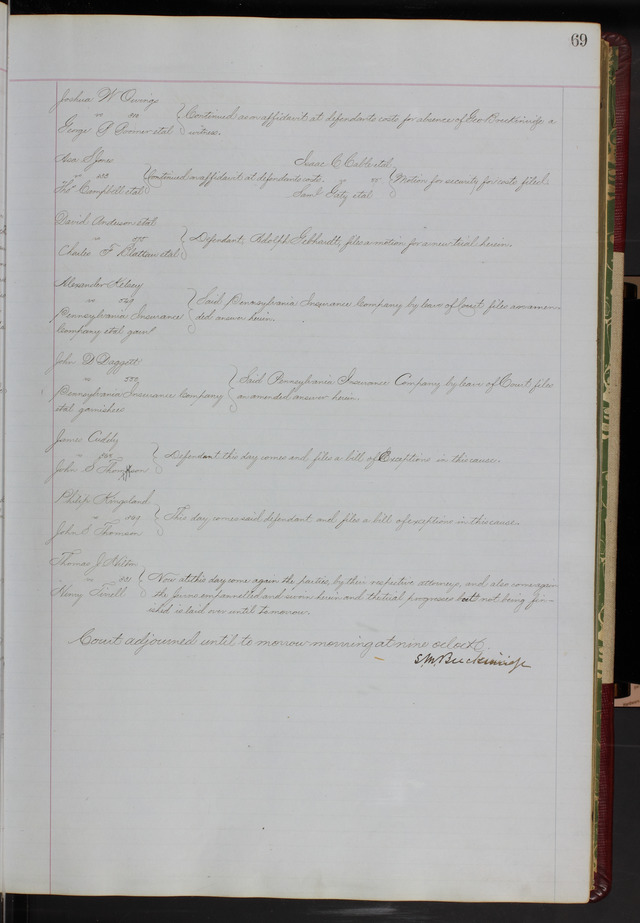 69
Joshua W Owings
vs 314 } Continued as on affidavit at defendants costs for absence of Geo Buckinridge a
George P et al witness.
Asa
vs } Continued on affidavit at defendants costs.
Thos Campbell et al
Isaac C Cable et al
vs } Motion for security for costs filed
Saml Gaty et al
David Anderson et al
vs } Defendant Adolph Gebhardt, files a motion for a new trial herein.
Charles F et al
Alexander Kelsey
vs 549 } Said Pennsylvania Insurance Company by leave of Court files an amen-
Pennsylvania Insurance ded answer herein.
Company et al garns
John D Daggett
vs 550 } Said Pennsylvania Insurance Company by leave of Court files
Pennsylvania Insurance Company an amended answer herein.
et al garnishees
James Cuddy
vs } Defendant this day comes and files a bill of Exceptions in this cause.
John S Thompson
Philip Kingsland
vs } This day comes said defendant and files a bill of exceptions in this cause.
John S Thomson
Thomas J
vs } Now at this day come again the parties, by their respective attorneys, and also come again
Henry the Jurors empannelled and sworn herein and the trial progresses but not being fin-
ished is laid over until tomorrow.
Court adjourned until to morrow morning at nine oclock.
S. M. Breckinridge